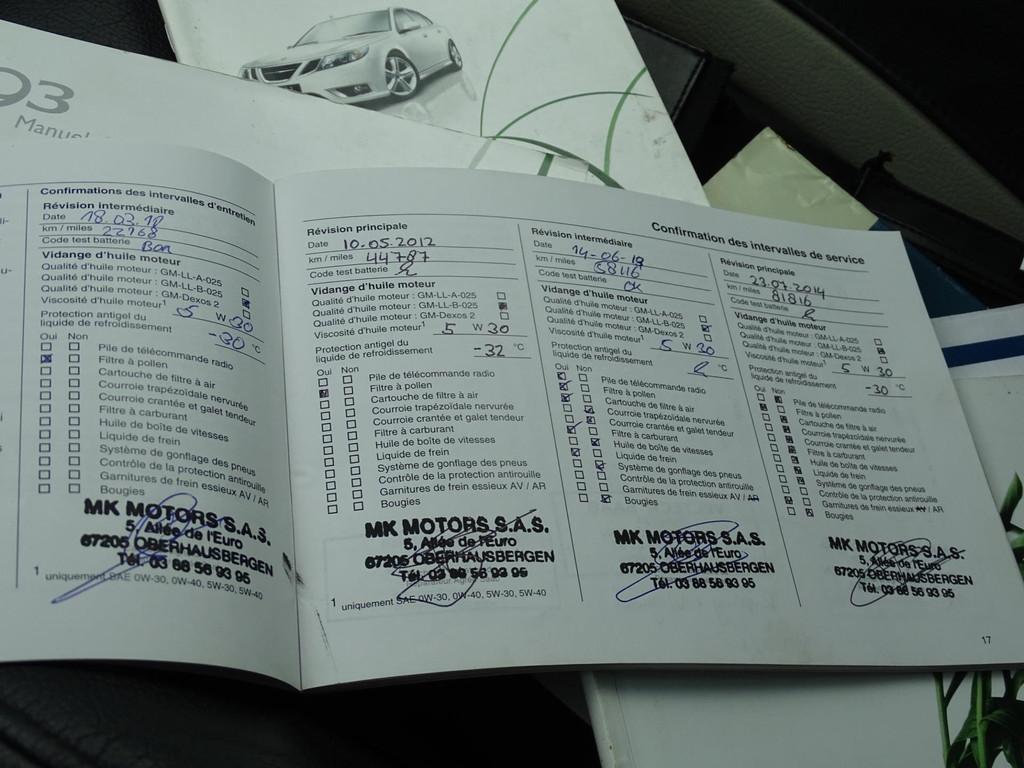 93
Manuel
Confirmations des intervalles d'entretien
Révision intermédiaire
Date 18.03.
km / miles 22768
Code test batterie Bon
Vidange d'huile moteur
Qualité d'huile moteur : GM-LL-A-025
Qualité d'huile moteur : GM-LL-B-025
Qualité d'huile moteur : GM-Dexos 2
Viscosité d'huile moteur¹ 5 W 30
Protection antigel du
liquide de refroidissement -30 °C
Oui Non
Pile de télécommande radio
Filtre à pollen
Cartouche de filtre à air
Courroie trapézoïdale nervurée
Courroie crantée et galet tendeur
Filtre à carburant
Huile de boîte de vitesses
Liquide de frein
Système de gonflage des pneus
Contrôle de la protection antirouille
Garnitures de frein essieux AV / AR
Bougies
MK MOTORS S.A.S.
5, Allée de l'Euro
67205 OBERHAUSBERGEN
Tél. 03 88 56 93 95
1 uniquement SAE 0W-30, 0W-40, 5W-30, 5W-40
Révision principale
Date 10-05-2012
km / miles 44787
Code test batterie
Vidange d'huile moteur
Qualité d'huile moteur : GM-LL-A-025
Qualité d'huile moteur : GM-LL-B-025
Qualité d'huile moteur : GM-Dexos 2
Viscosité d'huile moteur¹ 5 W 30
Protection antigel du
liquide de refroidissement -32 °C
Oui Non
Pile de télécommande radio
Filtre à pollen
Cartouche de filtre à air
Courroie trapézoïdale nervurée
Courroie crantée et galet tendeur
Filtre à carburant
Huile de boîte de vitesses
Liquide de frein
Système de gonflage des pneus
Contrôle de la protection antirouille
Garnitures de frein essieux AV / AR
Bougies
MK MOTORS S.A.S.
5, Allée de l'Euro
67205 OBERHAUSBERGEN
Tél. 03 88 56 93 95
1 uniquement SAE 0W-30, 0W-40, 5W-30, 5W-40
Confirmation des intervalles de service
Révision intermédiaire
Date 14-06-
km / miles 58116
Code test batterie OK
Vidange d'huile moteur
Qualité d'huile moteur : GM-LL-A-025
Qualité d'huile moteur : GM-LL-B-025
Qualité d'huile moteur : GM-Dexos 2
Viscosité d'huile moteur¹ 5 W 30
Protection antigel du
liquide de refroidissement °C
Oui Non
Pile de télécommande radio
Filtre à pollen
Cartouche de filtre à air
Courroie trapézoïdale nervurée
Courroie crantée et galet tendeur
Filtre à carburant
Huile de boîte de vitesses
Liquide de frein
Système de gonflage des pneus
Contrôle de la protection antirouille
Garnitures de frein essieux AV / AR
Bougies
MK MOTORS S.A.S.
5, Allée de l'Euro
67205 OBERHAUSBERGEN
Tél. 03 88 56 93 95
Révision principale
Date 23.07.2014
km / miles 81816
Code test batterie
Vidange d'huile moteur
Qualité d'huile moteur : GM-LL-A-025
Qualité d'huile moteur : GM-LL-B-025
Qualité d'huile moteur : GM-Dexos 2
Viscosité d'huile moteur¹ 5 W 30
Protection antigel du
liquide de refroidissement -30 °C
Oui Non
Pile de télécommande radio
Filtre à pollen
Cartouche de filtre à air
Courroie trapézoïdale nervurée
Courroie crantée et galet tendeur
Filtre à carburant
Huile de boîte de vitesses
Liquide de frein
Système de gonflage des pneus
Contrôle de la protection antirouille
Garnitures de frein essieux AV / AR
Bougies
MK MOTORS S.A.S.
5, Allée de l'Euro
67205 OBERHAUSBERGEN
Tél. 03 88 56 93 95
17